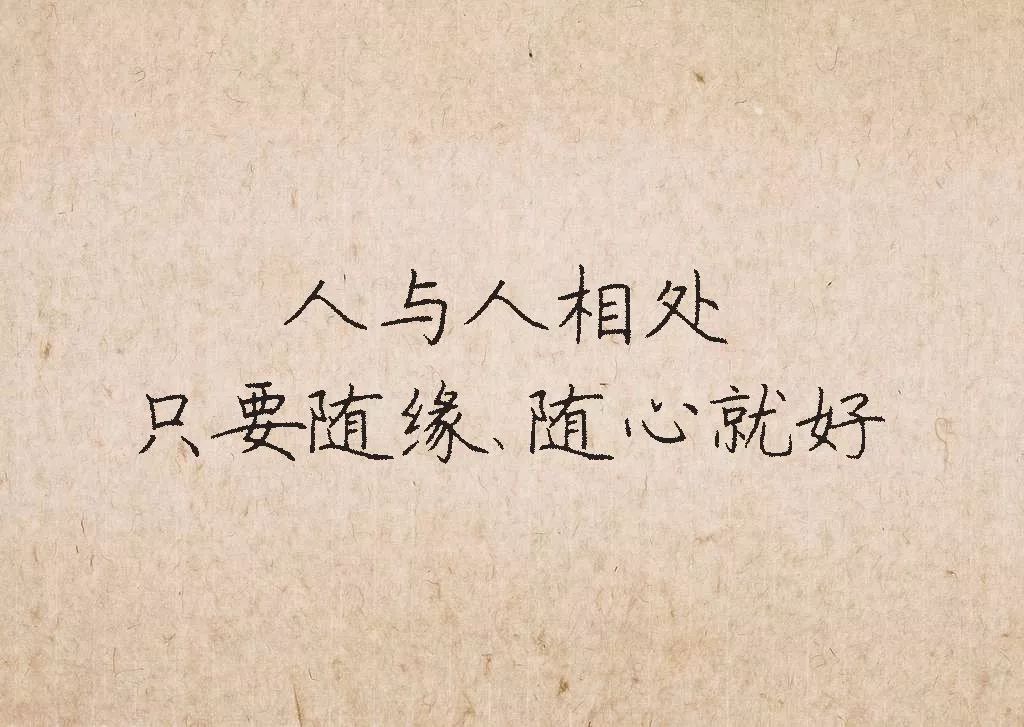 人与人相处
只要随缘、随心就好